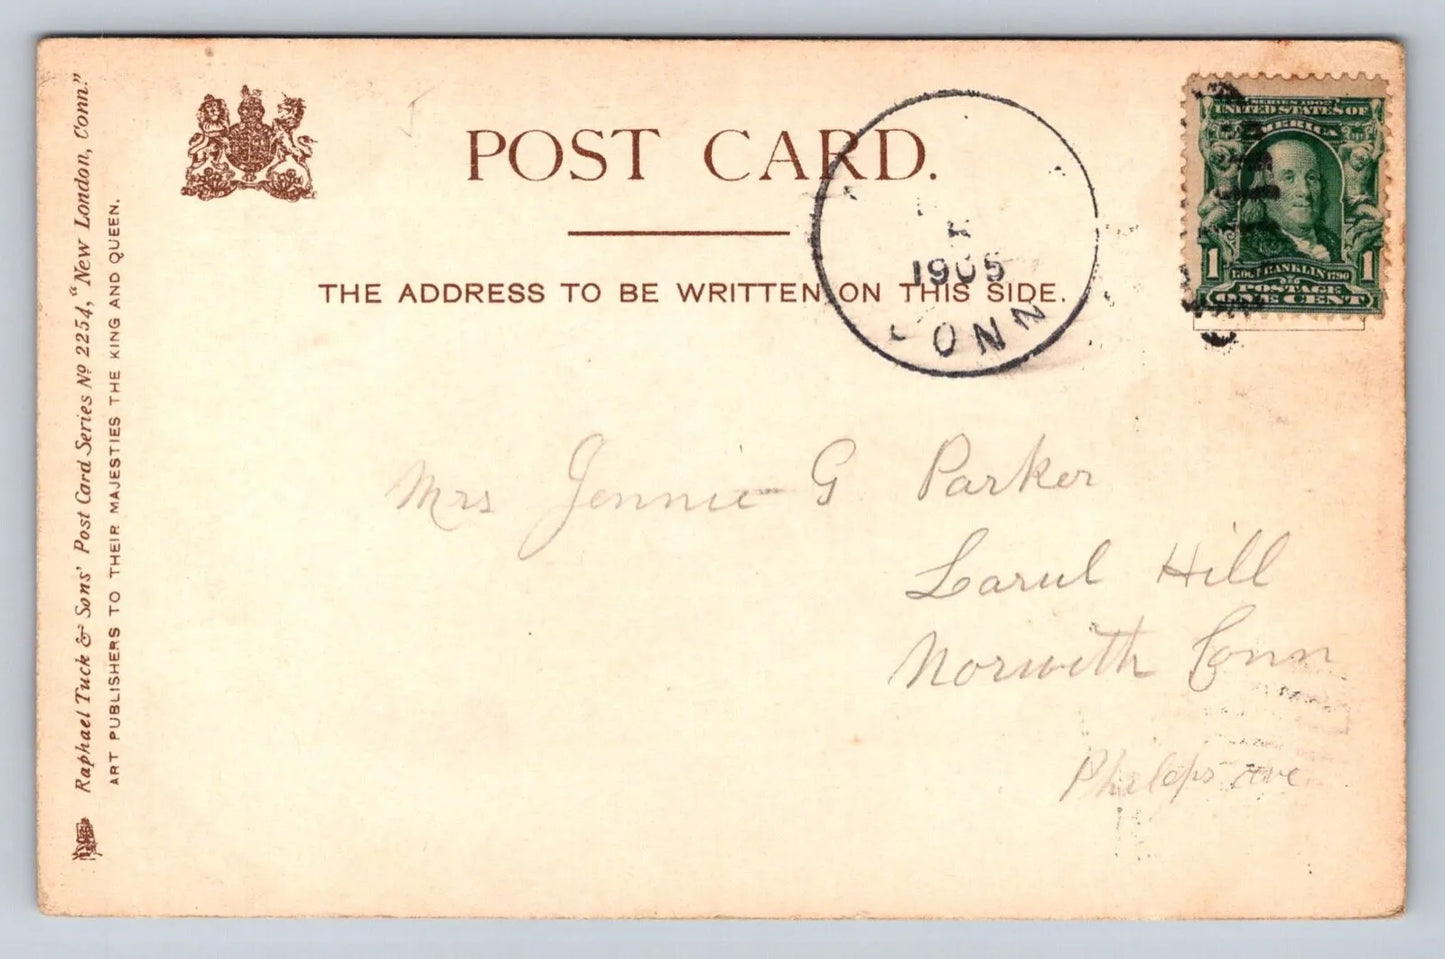 POST CARD.
THE ADDRESS TO BE WRITTEN ON THIS SIDE.
Raphael Tuck & Sons' Post Card Series No 2254, "New London, Conn."
ART PUBLISHERS TO THEIR MAJESTIES THE KING AND QUEEN.
1905
CONN
SERIES 1902
UNITED STATES OF
AMERICA
1706 FRANKLIN 1790
1 1
POSTAGE
ONE CENT
Mrs Jennie G. Parker
Larul Hill
Norwith Conn
Phelps Ave